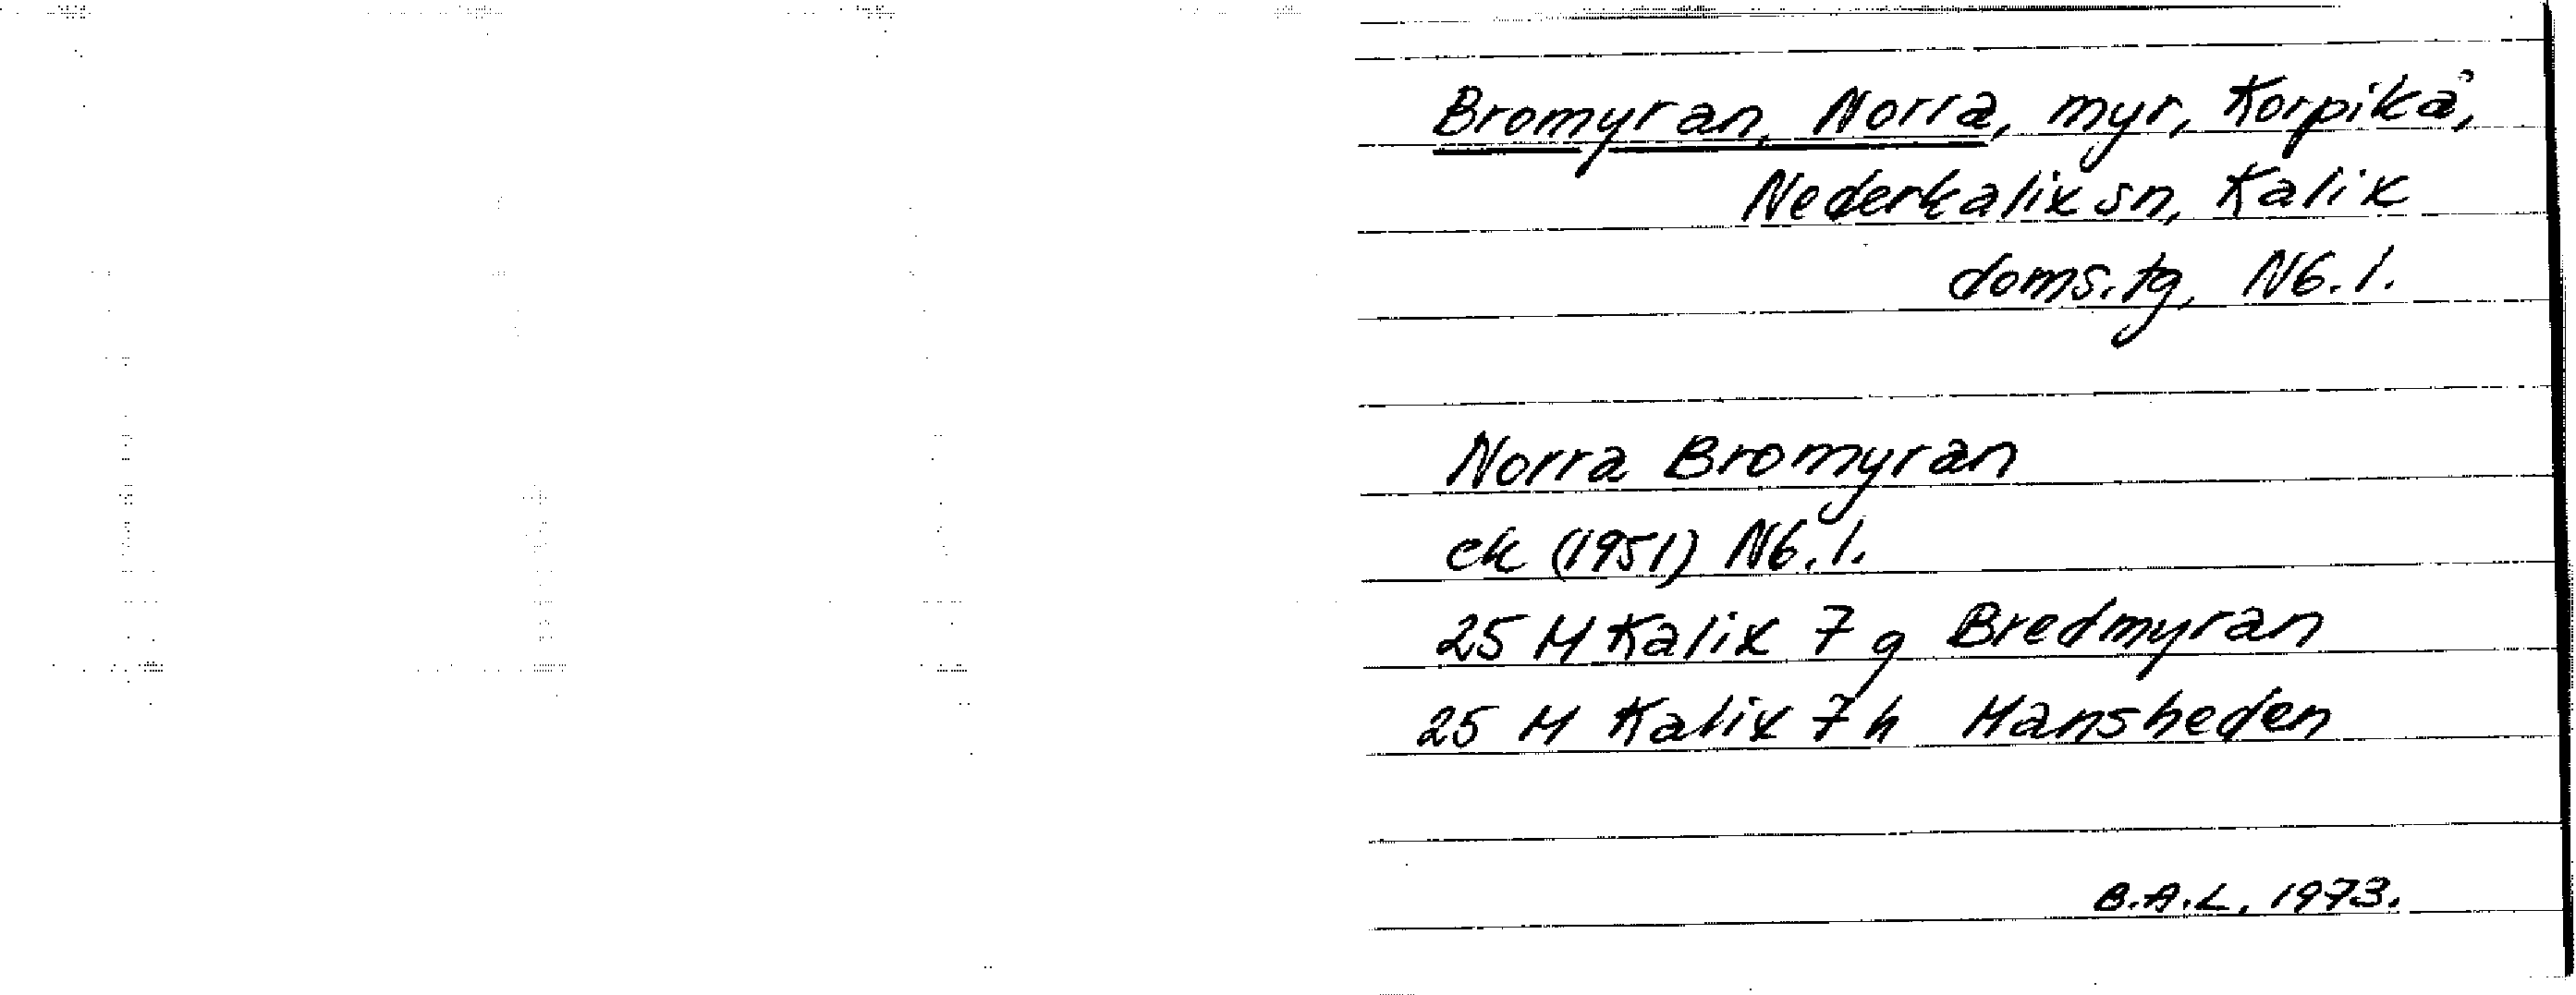 Bromyran, Norra, myr, Korpikå,
Nederkalix sn, Kalix
doms.tg, Nb.l.
Norra Bromyran
ek (1951) Nb.l.
25 M Kalix 7 g Bredmyran
25 M Kalix 7 h Mansheden
B.A.L. 1973.